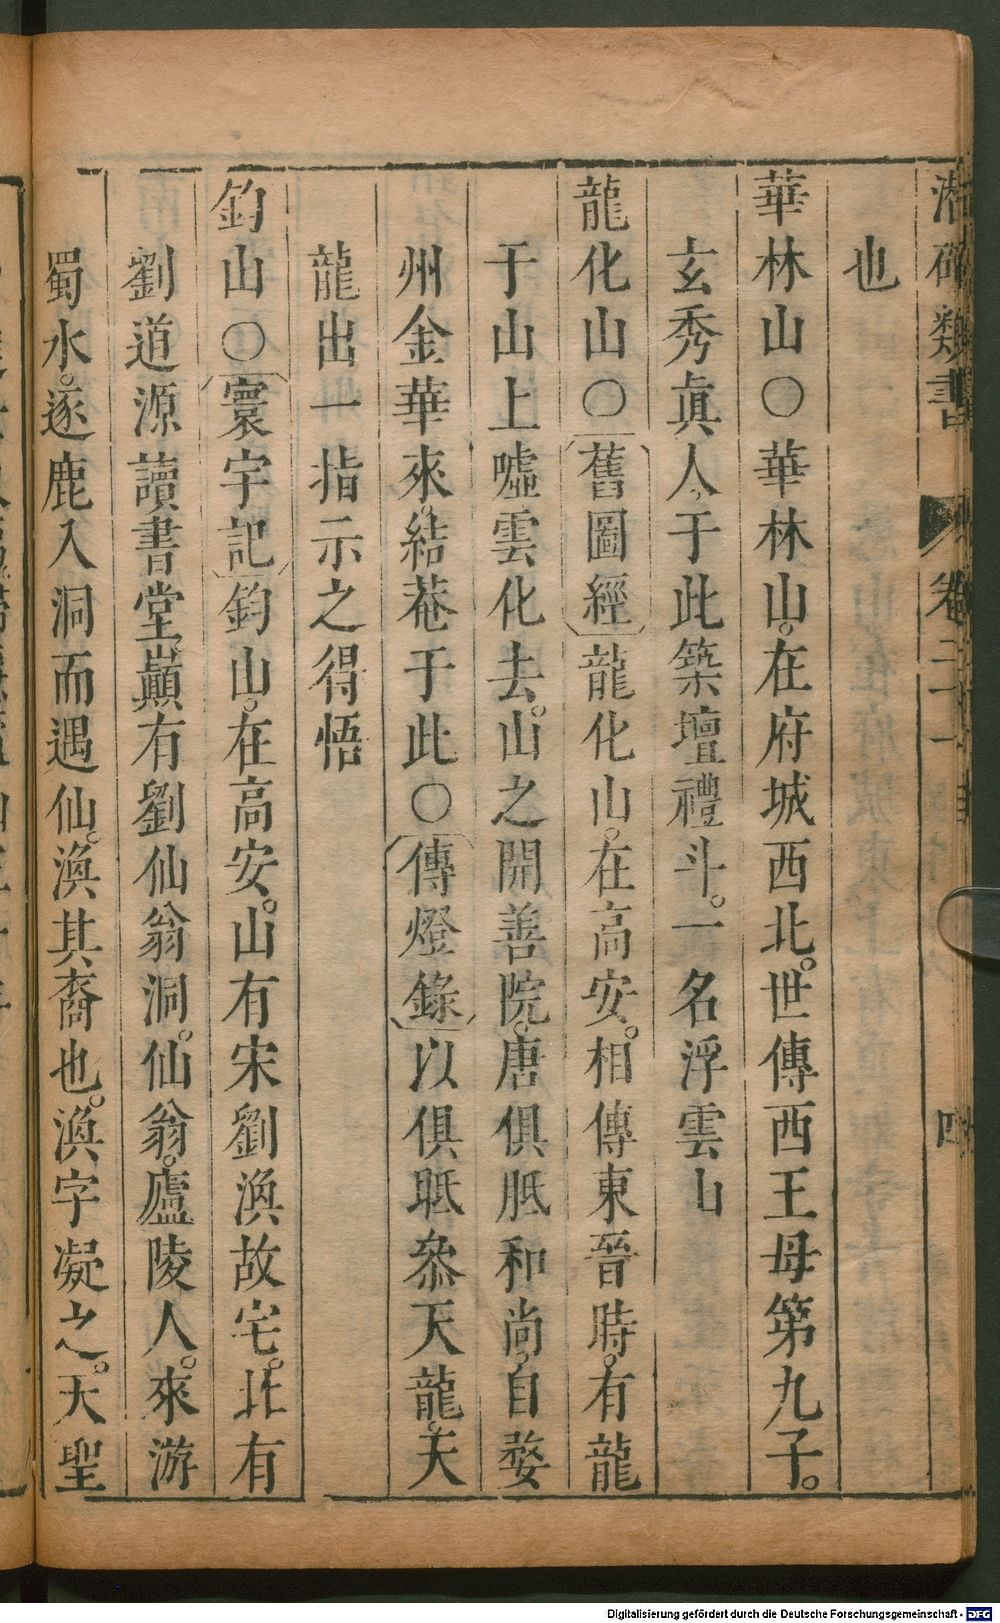 潜確類書 卷二十一 四
也
華林山〇華林山。在府城西北。世傳西王母第九子。
玄秀眞人。于此築壇禮斗。一名浮雲山
龍化山〇舊圖經龍化山。在高安。相傳東晉時。有龍
于山上噓雲化去。山之開善院。唐俱胝和尚。自婺
州金華來。結菴于此〇傳燈錄以俱胝叅天龍。天
龍出一指示之得悟
鈞山〇寰宇記鈞山。在高安。山有宋劉渙故宅。北有
劉道源讀書堂巔有劉仙翁洞。仙翁。廬陵人。來游
蜀水。逐鹿入洞而遇仙。渙其裔也。渙字凝之。天聖
Digitalisierung gefördert durch die Deutsche Forschungsgemeinschaft - DFG